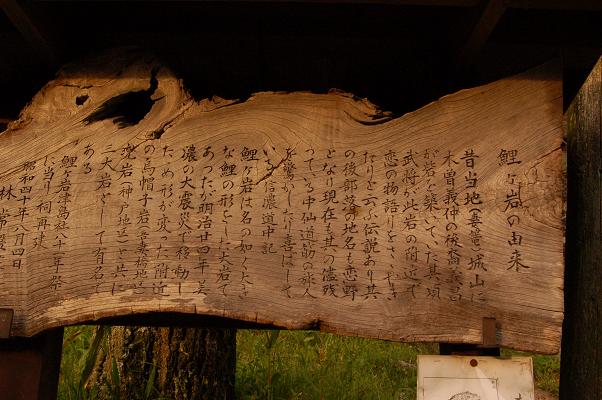 鯉ヶ岩の由来
昔当地(妻籠)城山に
木曽義仲の後裔義昌
が岩を築いていた其頃
武将が此岩の附近で
恋の物語りをしやき
たりと云ふ伝説あり其
の後部落の地名も恋野
となり現在も其の儘残
っている中仙道筋の旅人
を驚かしたり喜ばして
いる信濃道中記
鯉ヶ岩は名の如く大き
な鯉の形をした大岩で
あったが明治廿四年美
濃の大震災で移動し
ため形が変った附近
の烏帽子岩(妻橋地区)
兜岩(神戸地区)と共に
三大岩として有名で
ある
鯉ヶ岩津島社八十年祭
に当り祠再建
昭和四十年八月四日
林